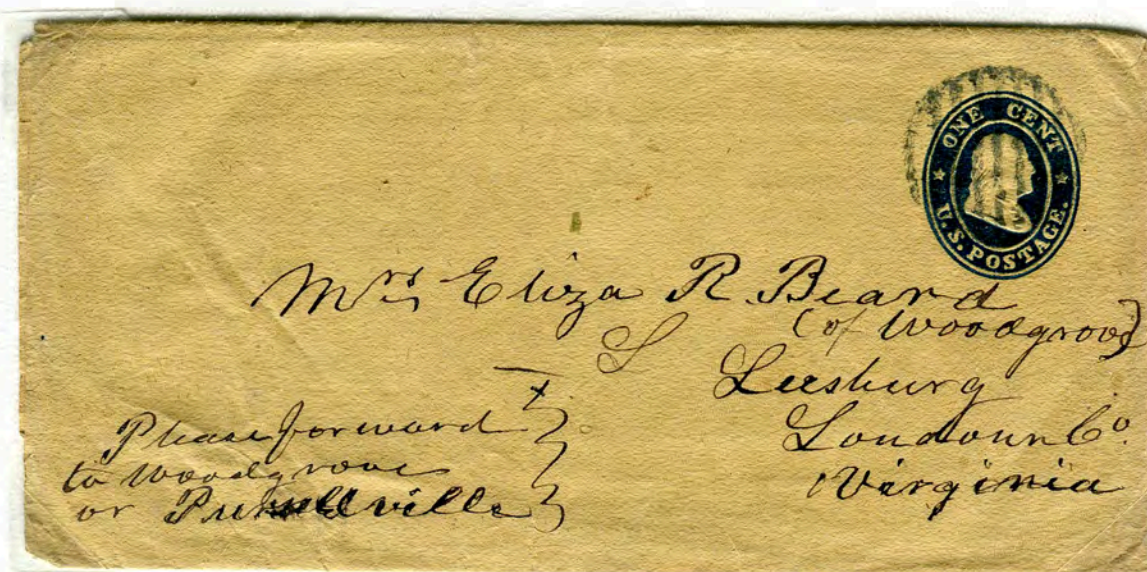 ONE CENT
U.S. POSTAGE.
Mrs Eliza R. Beard
(of Woodgrove)
Leesburg
Loudoun Co.
Virginia
Please forward
to Woodgrove
or Purcellville